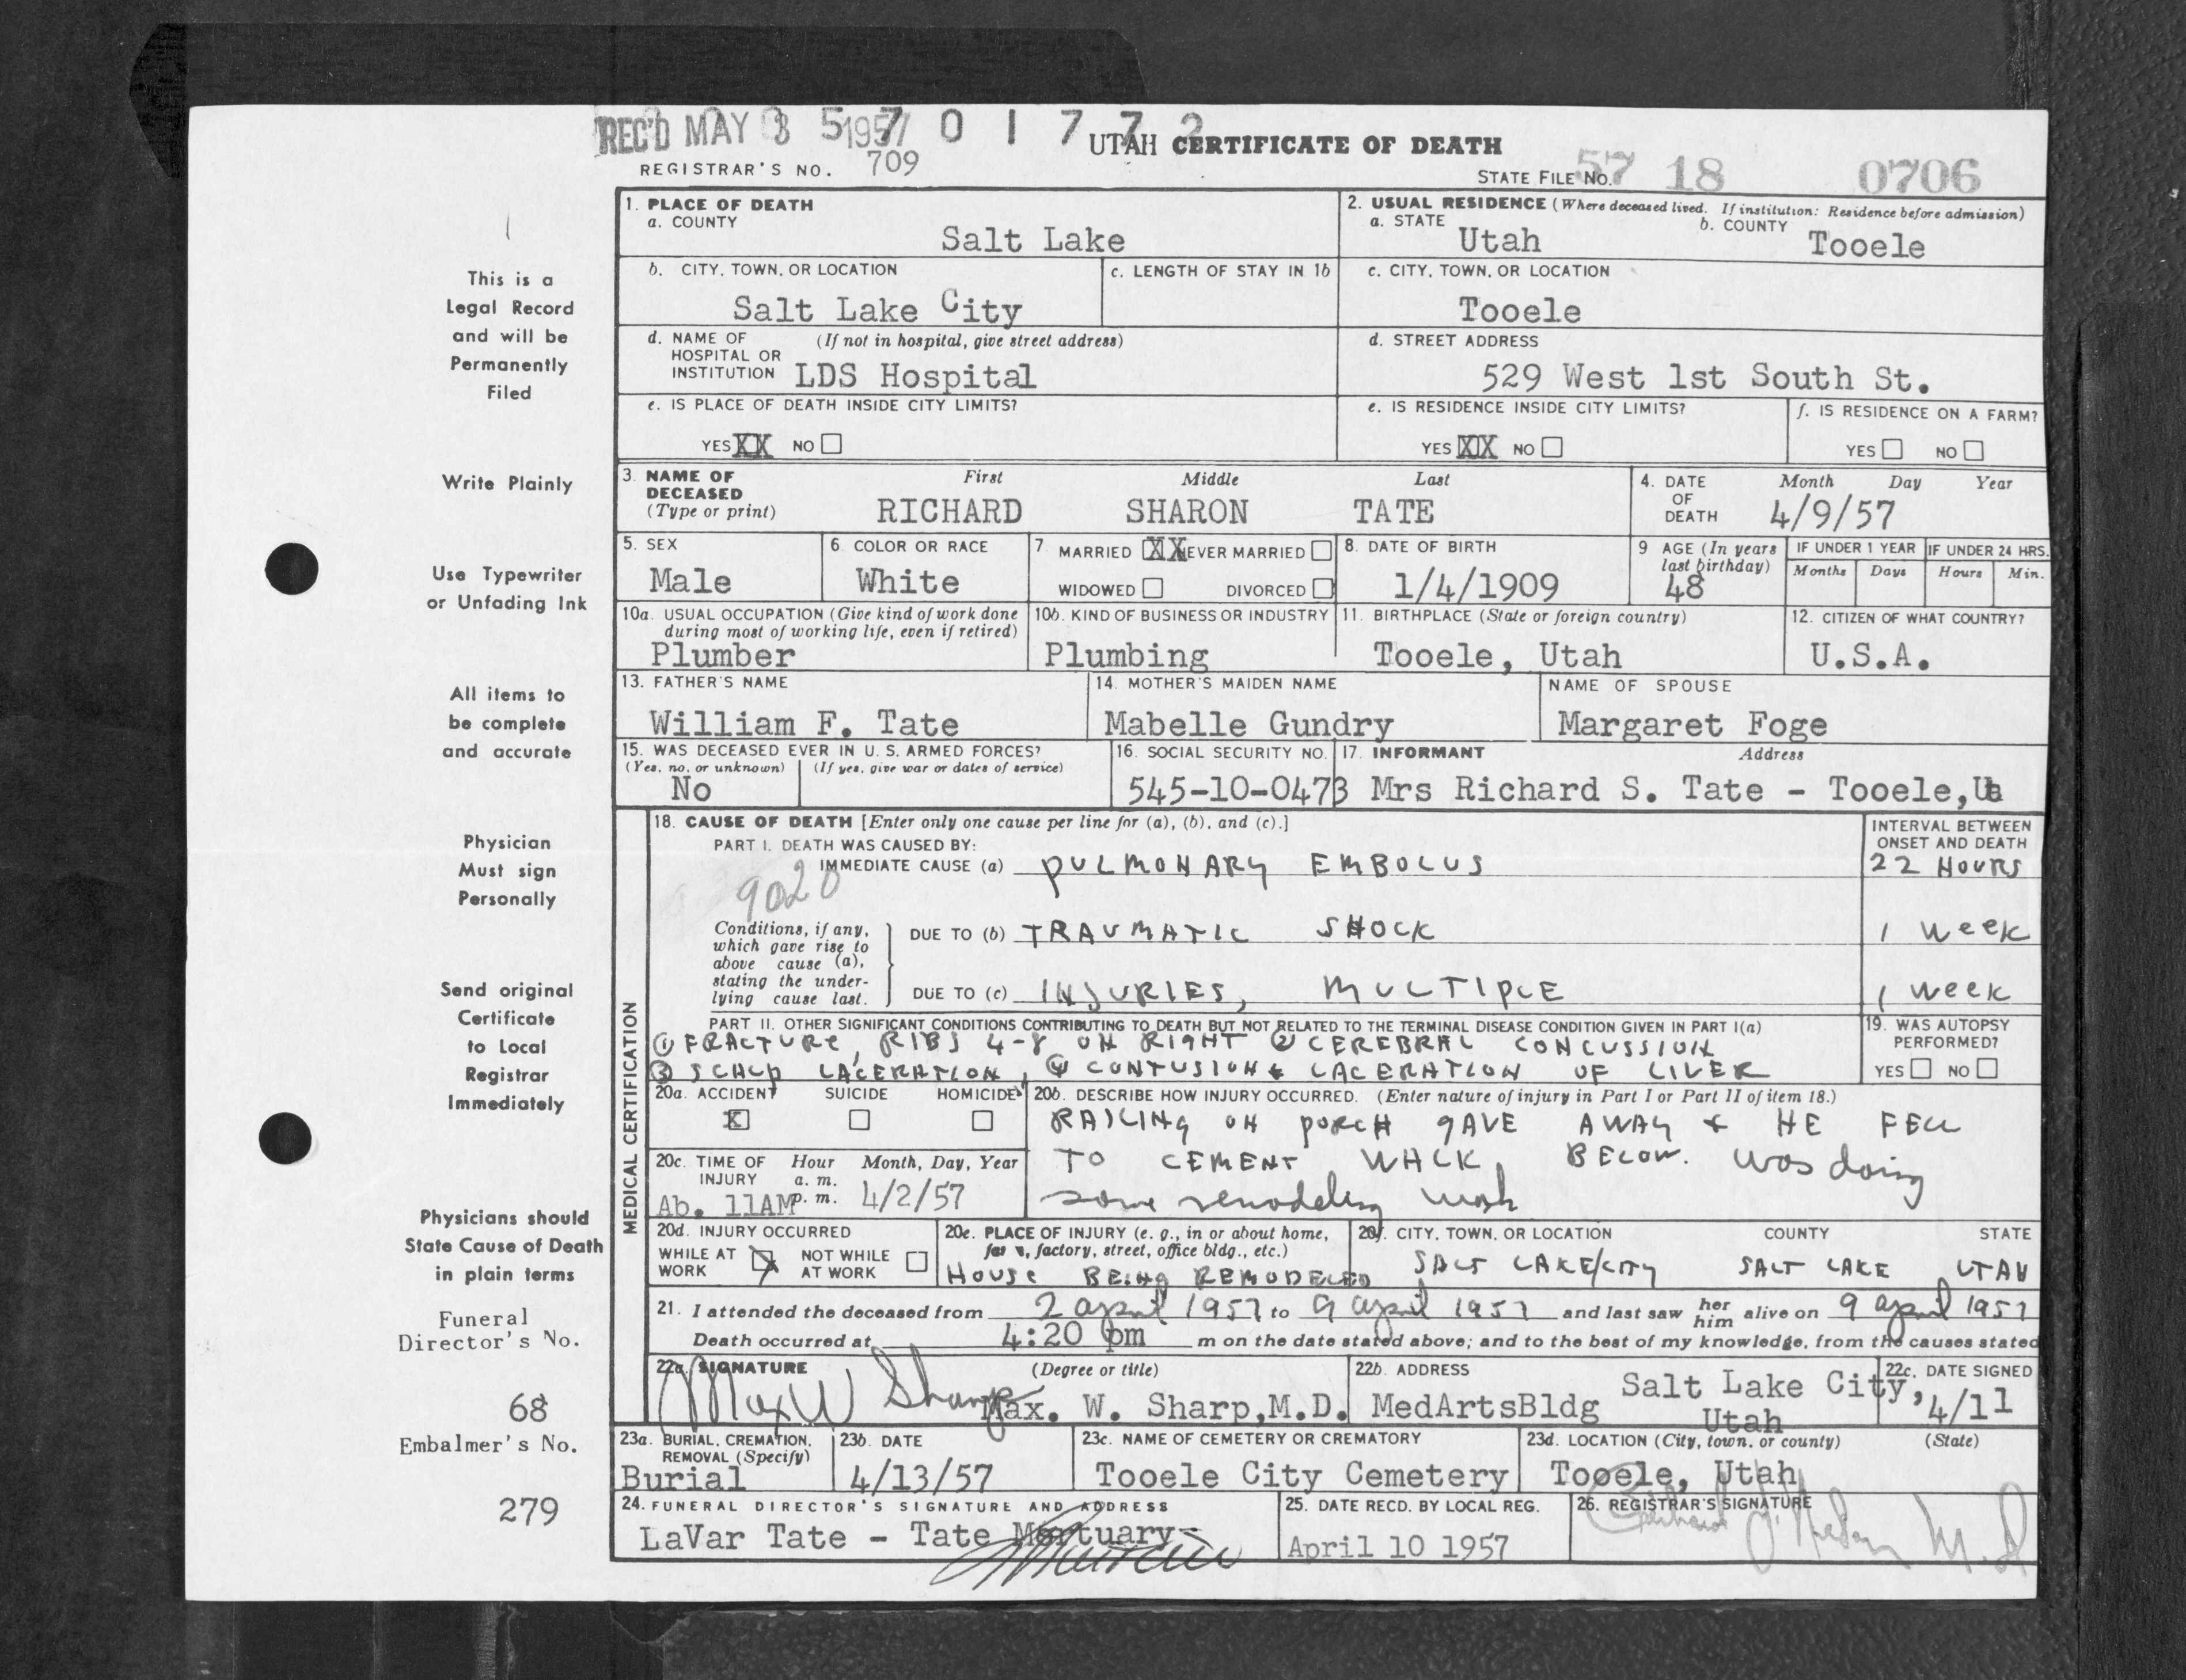 REC'D MAY 3 1957 5 7 0 1 7 7 2
UTAH CERTIFICATE OF DEATH
REGISTRAR'S NO. 709
STATE FILE NO. 57 18 0706
1. PLACE OF DEATH
a. COUNTY
Salt Lake
2. USUAL RESIDENCE (Where deceased lived. If institution: Residence before admission)
a. STATE Utah b. COUNTY Tooele
b. CITY, TOWN, OR LOCATION
Salt Lake City
c. LENGTH OF STAY IN 1b
c. CITY, TOWN, OR LOCATION
Tooele
d. NAME OF HOSPITAL OR INSTITUTION (If not in hospital, give street address)
LDS Hospital
d. STREET ADDRESS
529 West 1st South St.
e. IS PLACE OF DEATH INSIDE CITY LIMITS?
YES XX NO
e. IS RESIDENCE INSIDE CITY LIMITS?
YES XX NO
f. IS RESIDENCE ON A FARM?
YES NO
3. NAME OF DECEASED (Type or print)
First Middle Last
RICHARD SHARON TATE
4. DATE OF DEATH
Month Day Year
4/9/57
5. SEX
Male
6. COLOR OR RACE
White
7. MARRIED XX NEVER MARRIED
WIDOWED DIVORCED
8. DATE OF BIRTH
1/4/1909
9 AGE (In years last birthday)
48
IF UNDER 1 YEAR
Months Days
IF UNDER 24 HRS.
Hours Min.
10a. USUAL OCCUPATION (Give kind of work done during most of working life, even if retired)
Plumber
10b. KIND OF BUSINESS OR INDUSTRY
Plumbing
11. BIRTHPLACE (State or foreign country)
Tooele, Utah
12. CITIZEN OF WHAT COUNTRY?
U.S.A.
13. FATHER'S NAME
William F. Tate
14. MOTHER'S MAIDEN NAME
Mabelle Gundry
NAME OF SPOUSE
Margaret Foge
15. WAS DECEASED EVER IN U. S. ARMED FORCES?
(Yes, no, or unknown) (If yes, give war or dates of service)
No
16. SOCIAL SECURITY NO.
545-10-0473
17. INFORMANT Address
Mrs Richard S. Tate - Tooele, Ut
MEDICAL CERTIFICATION
18. CAUSE OF DEATH [Enter only one cause per line for (a), (b), and (c).]
PART I. DEATH WAS CAUSED BY:
INTERVAL BETWEEN ONSET AND DEATH
IMMEDIATE CAUSE (a) PULMONARY EMBOLUS 22 HOURS
9020
Conditions, if any, which gave rise to above cause (a), stating the underlying cause last.
DUE TO (b) TRAUMATIC SHOCK 1 week
DUE TO (c) INJURIES, MULTIPLE 1 week
PART II. OTHER SIGNIFICANT CONDITIONS CONTRIBUTING TO DEATH BUT NOT RELATED TO THE TERMINAL DISEASE CONDITION GIVEN IN PART I(a)
① FRACTURE, RIBS 4-8 ON RIGHT ② CEREBRAL CONCUSSION
③ SCALP LACERATION, ④ CONTUSION & LACERATION OF LIVER
19. WAS AUTOPSY PERFORMED?
YES NO
20a. ACCIDENT SUICIDE HOMICIDE
X
20b. DESCRIBE HOW INJURY OCCURRED. (Enter nature of injury in Part I or Part II of item 18.)
RAILING ON PORCH GAVE AWAY & HE FELL
TO CEMENT WALK BELOW. was doing
some remodeling work
20c. TIME OF INJURY Hour a. m. p. m. Month, Day, Year
Ab. 11AM 4/2/57
20d. INJURY OCCURRED
WHILE AT WORK X NOT WHILE AT WORK
20e. PLACE OF INJURY (e. g., in or about home, farm, factory, street, office bldg., etc.)
HOUSE BEING REMODELED
20f. CITY, TOWN, OR LOCATION COUNTY STATE
SALT LAKE CITY SALT LAKE UTAH
21. I attended the deceased from 2 april 1957 to 9 april 1957 and last saw her him alive on 9 april 1957
Death occurred at 4:20 pm m on the date stated above; and to the best of my knowledge, from the causes stated
22a. SIGNATURE (Degree or title)
Max W Sharp Max. W. Sharp, M.D.
22b. ADDRESS
MedArtsBldg Salt Lake City, Utah
22c. DATE SIGNED
4/11
23a. BURIAL, CREMATION, REMOVAL (Specify)
Burial
23b. DATE
4/13/57
23c. NAME OF CEMETERY OR CREMATORY
Tooele City Cemetery
23d. LOCATION (City, town, or county) (State)
Tooele, Utah
24. FUNERAL DIRECTOR'S SIGNATURE AND ADDRESS
LaVar Tate - Tate Mortuary-
25. DATE RECD. BY LOCAL REG.
April 10 1957
26. REGISTRAR'S SIGNATURE
M.D
This is a
Legal Record
and will be
Permanently
Filed
Write Plainly
Use Typewriter
or Unfading Ink
All items to
be complete
and accurate
Physician
Must sign
Personally
Send original
Certificate
to Local
Registrar
Immediately
Physicians should
State Cause of Death
in plain terms
Funeral
Director's No.
68
Embalmer's No.
279